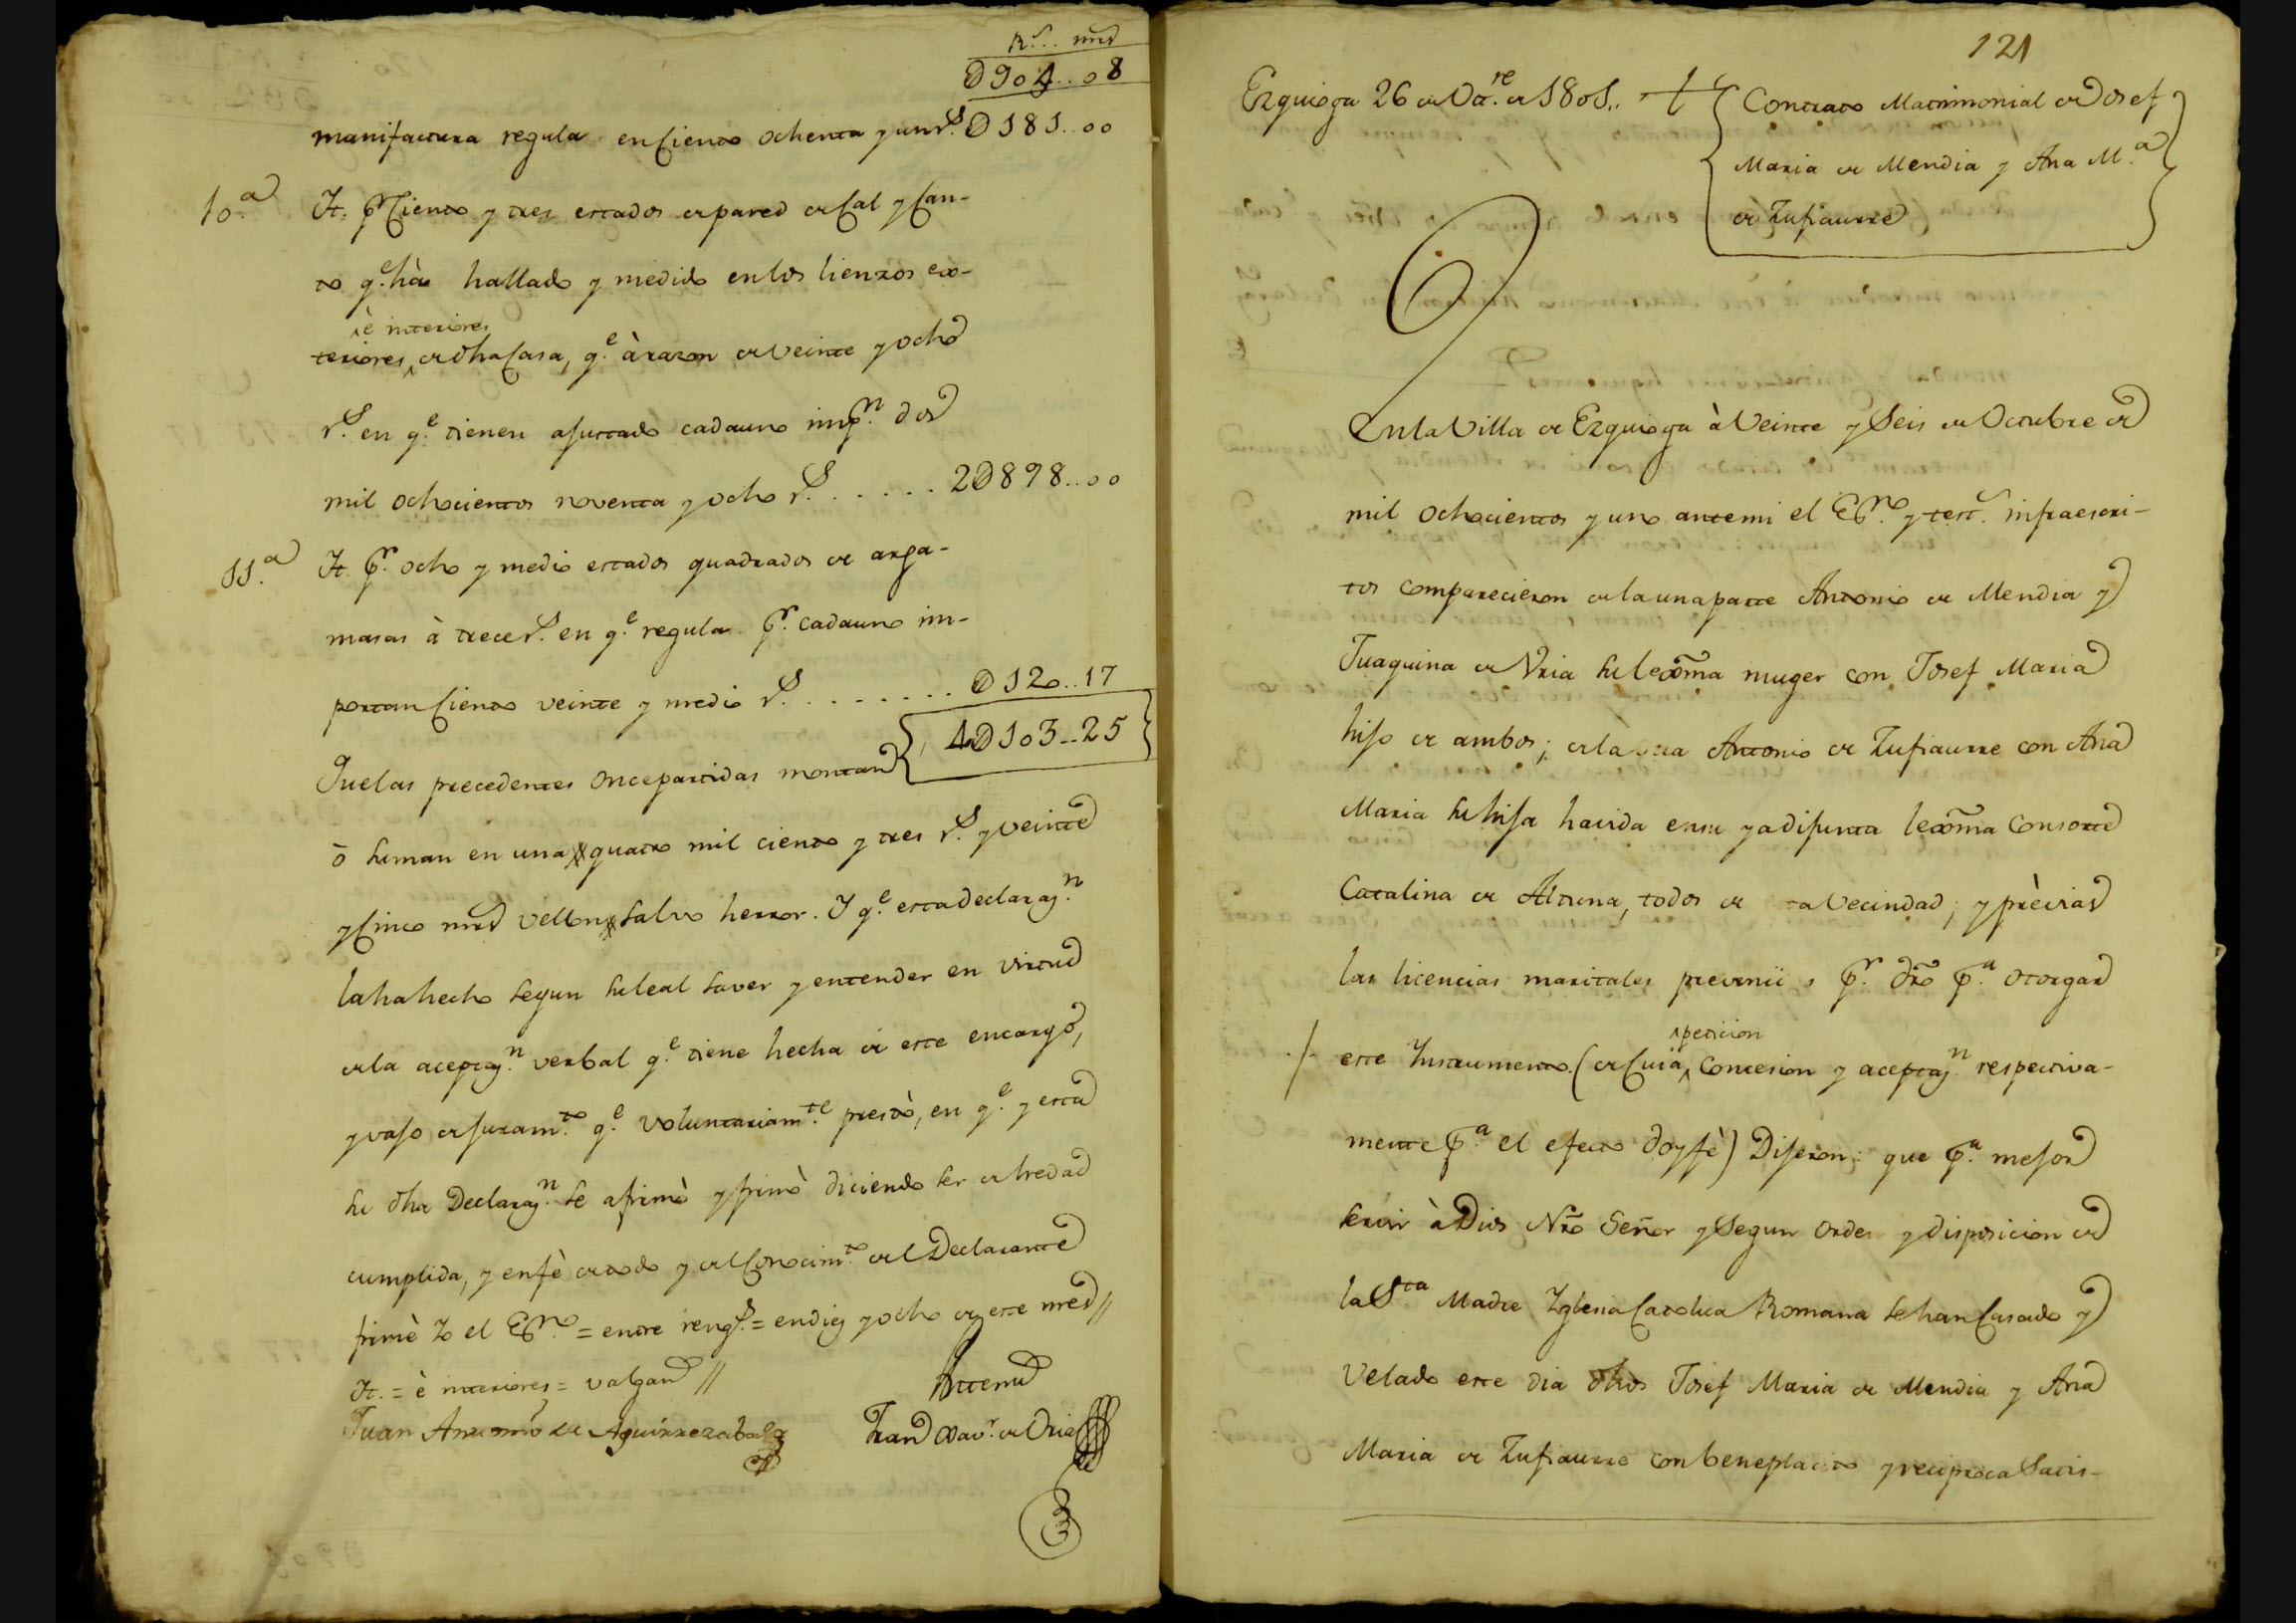 Rs... mrs
D904..08
manifactura regula en Ciento ochenta y un rs. D181..00
10.a It. pr. Ciento y tres estados de pared de Cal y Can-
to q.e hà hallado y medido en los lienzos ex-
è interiores
teriores, de dha Casa, q.e à razon de veinte y ocho
rs. en q.e tienen ajustado cada uno imp.n dos
mil ochocientos noventa y ocho rs. . . . . . 2D898..00
11.a It. pr. ocho y medio estados quadrados de arga-
masas à trece rs. en q.e regula pr. cada uno im-
portan Ciento veinte y medio rs. . . . . . . . D120..17
Que las precedentes once partidas montan 4D103..25
ò suman en una quatro mil ciento y tres rs. y veinte
y Cinco mrs vellon salvo herror. Y q.e esta declaraz.n
la ha hecho segun su leal saver y entender en virtud
de la aceptaz.n verbal q.e tiene hecha de este encargo,
y vajo de juram.to q.e voluntariam.te prestò, en q.e y esta
su dha Declaraz.n se afirmò y firmò diciendo ser de hedad
cumplida, y en fè de todo y del Conocim.to del Declarante
firmè Yo el Essno = entre rengs. = en diez y ocho de este mes //
It. = è interiores = valgan //
Antemi
Juan Antonio de Aguirrezabala
Fran Xav.r de Vria
121
Ezquioga 26 de Oct.re de 1801..
Contrato Matrimonial de Josef
Maria de Mendia y Ana M.a
de Zufiaurre
En la Villa de Ezquioga à Veinte y Seis de Octubre de
mil ochocientos y uno ante mi el Essno y test.s infraescri-
tos comparecieron de la una parte Antonio de Mendia y
Juaquina de Vria su lexma muger con Josef Maria
hijo de ambos; de la otra Antonio de Zufiaurre con Ana
Maria su hija havida en su ya difunta lexma Consorte
Catalina de Altuna, todos de esta Vecindad; y prèvias
las licencias maritales prevenidas pr. dro p.a otorgar
peticion
este Instrumento. (de Cuia, Concesion y aceptaz.n respectiva-
mente p.a el efecto doy fè) Dijeron: que p.a mejor
servir à Dios Nro Señor y Segun orden y disposicion de
la Sta Madre Yglesia Catolica Romana se han Casado y
Velado este dia dhos Josef Maria de Mendia y Ana
Maria de Zufiaurre con beneplacito y reciproca Satis-